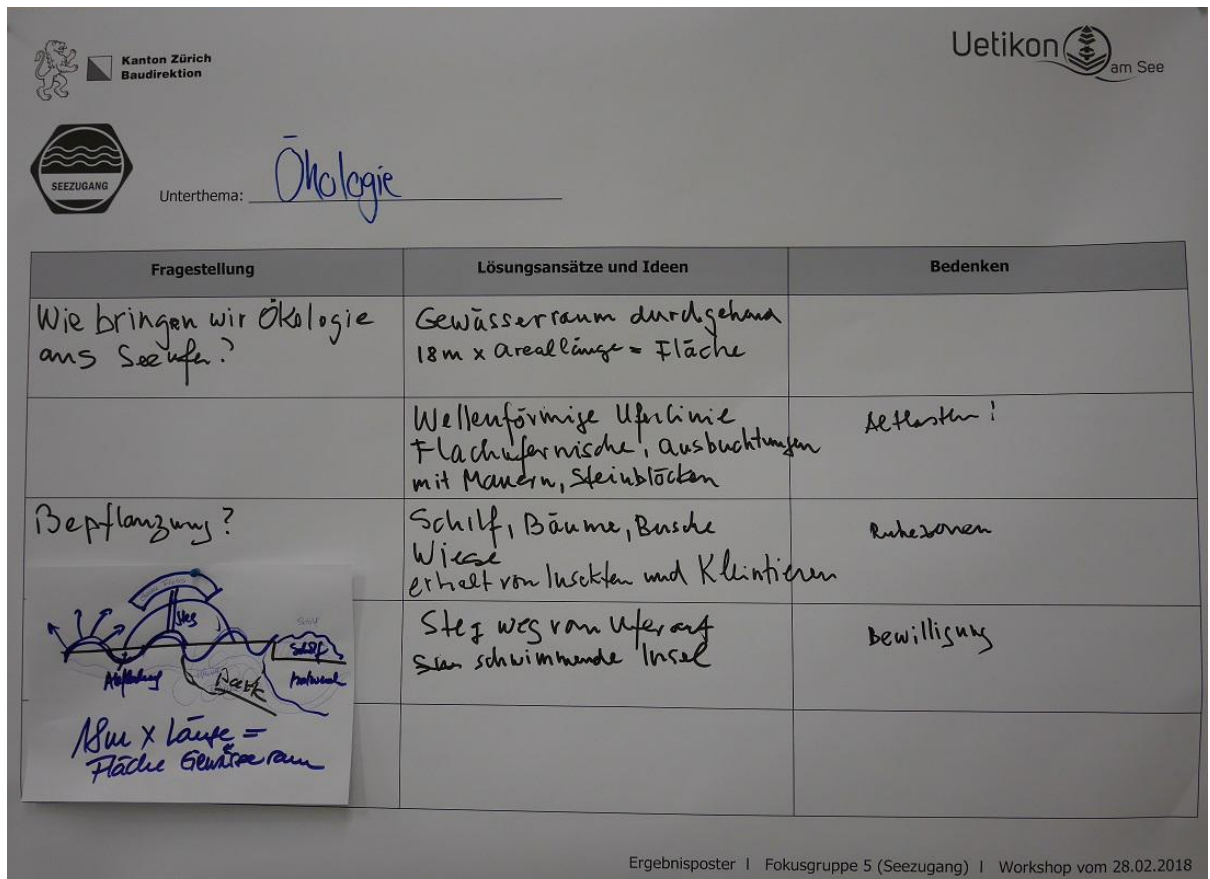 Kanton Zürich
Baudirektion
Uetikon
am See
SEEZUGANG
Unterthema: Ökologie
Fragestellung
Lösungsansätze und Ideen
Bedenken
Wie bringen wir Ökologie
ans Seeufer?
Gewässerraum durchgehend
18m x Areallänge = Fläche
Wellenförmige Uferlinie
Flachufernische, Ausbuchtungen
mit Mauern, Steinblöcken
Altlasten!
Bepflanzung?
Schilf, Bäume, Busche
Wiese
erhalt von Insekten und Kleintieren
Ruhezonen
Steg weg vom Ufer auf
schwimmende Insel
Bewilligung
Steg
Schilf
Schilf
Park
18m x Länge =
Fläche Gewässerraum
Ergebnisposter | Fokusgruppe 5 (Seezugang) | Workshop vom 28.02.2018